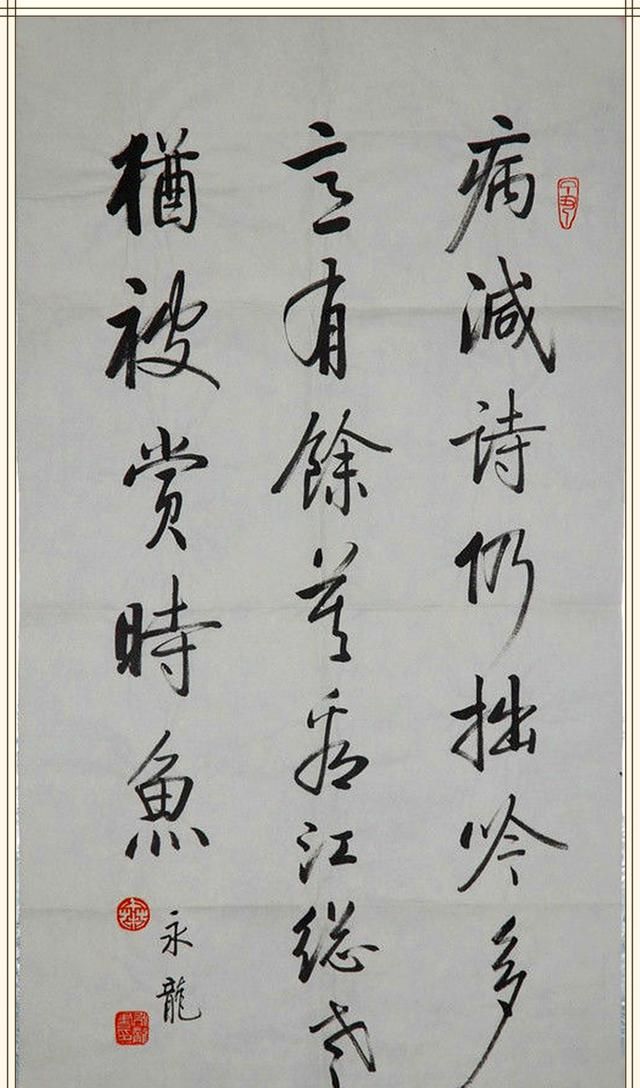 病減詩仍拙吟多
意有餘莫看江總老
猶被賞時魚
永龍